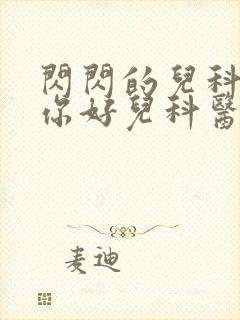 閃閃的兒科
你好兒科醫
麦迪